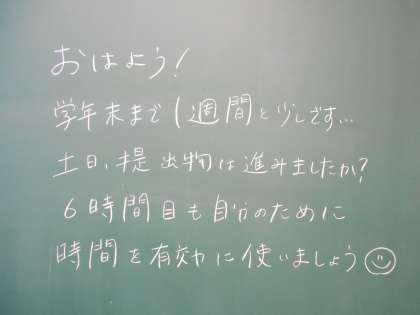 おはよう!
学年末まで1週間と少しです...
土日、提出物は進みましたか?
6時間目も自分のために
時間を有効に使いましょう☺